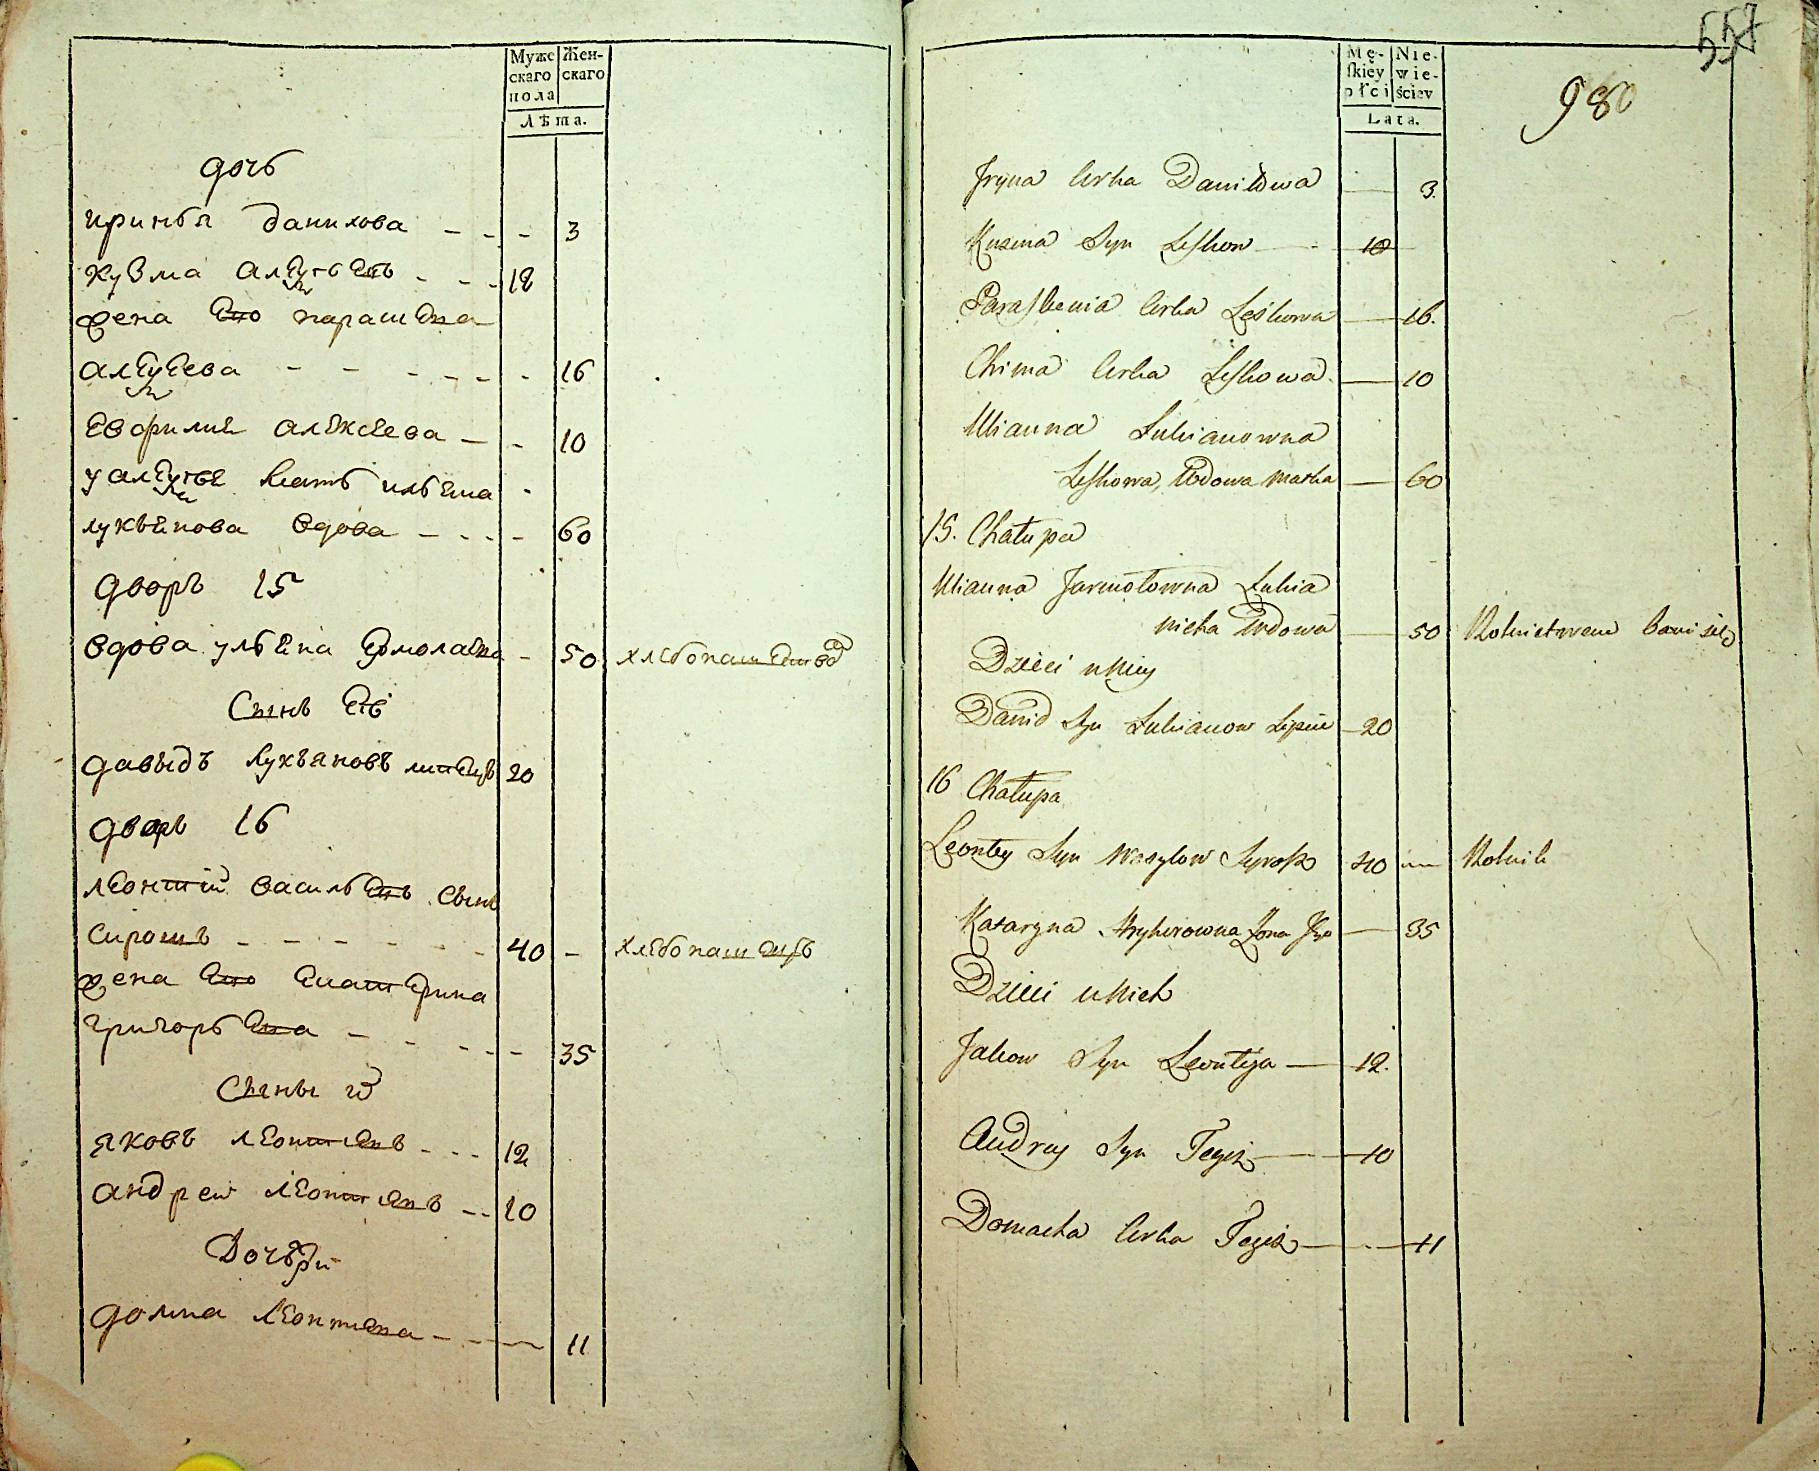 Муже
скаго
пола
Жен-
скаго
Лѣта.
дочь
ириньꙗ данилова - - - 3
кузма - - - 18
жена его парасева
- - - - - 16
алексеева - - 10
мать ульяна
лукьянова вдова - - - - 60
дворъ 15
вдова ульяна ермолаева - 50
Сынъ еѣ
давыдъ лукъяновъ 20
дворъ 16
леонтій васильевъ сынъ
сирошъ - - - - - 40 - хлебопашецъ
жена его екатерина
григорьева - - - - - 35
Сыны их
яковъ леонтиевъ - - - 12
андреи леонтиевъ - - 10
Дочери
домна леонтиева - - - 11
557
980
Mę-
skiéy
płci
Nie-
wie-
ściey
Lata.
Jryna Crka Daniłowa — 3.
Kuzma Syn Leskow — 18
Paraskewia Crka Leskowa — 16.
Chima Crka Leskowa — 10
Ulianna Lukianowna
Leskowa, Wdowa matka — 60
15. Chałupa
Ulianna Jarmołowna Lukia
nicha Wdowa — 50 Rolnictwem bawi się
Dzieci u Niey
Dawid Syn Lukianow — 20
16 Chałupa
Leontey Syn Wasylow 40 — Rolnik
Kataryna Hryhorowna Żona Jego — 35
Dzieci u Nich
Jakow Syn Leontija — 12.
Andrey Syn Tegiż — 10
Domacha Crka Tegiż — 11